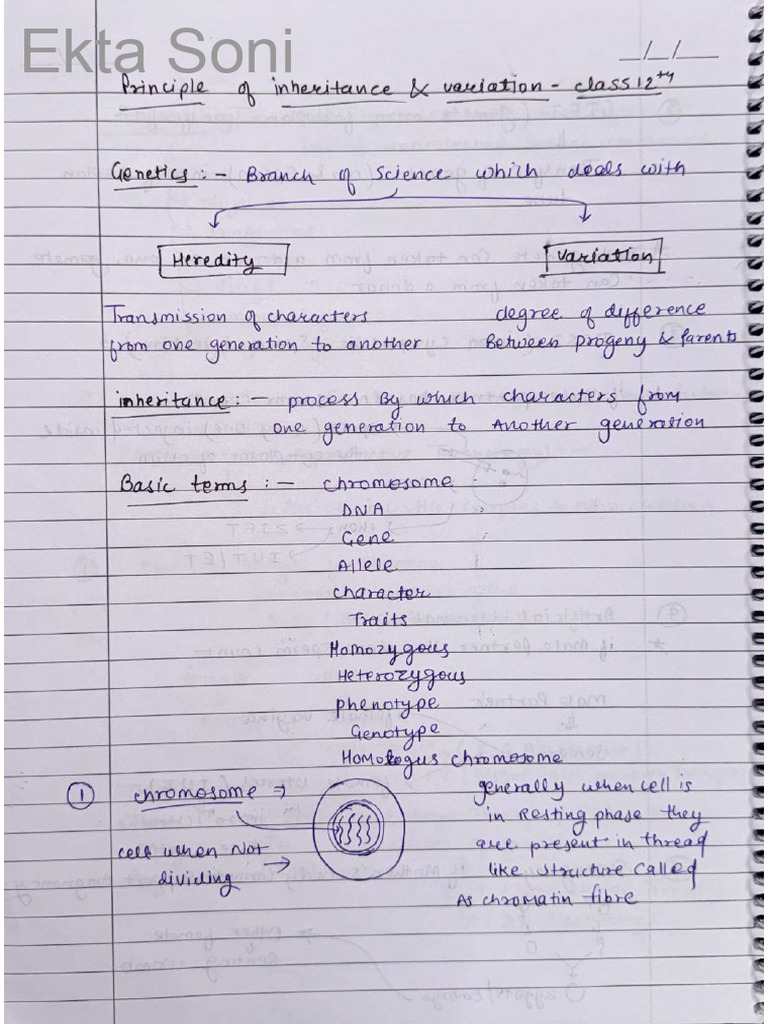 Ekta Soni
__/__/____
Principle of inheritance & variation - class 12th
Genetics :- Branch of Science which deals with
Heredity
Variation
Transmission of characters
from one generation to another
degree of difference
Between progeny & Parents
inheritance :- process By which characters from
one generation to Another generation
Basic terms :- chromosome
DNA
Gene
Allele
character
Traits
Homozygous
Heterozygous
phenotype
Genotype
Homologus chromosome
① chromosome ⇒
cell when Not
dividing →
generally when cell is
in Resting phase they
are present in thread
like structure called
As chromatin fibre